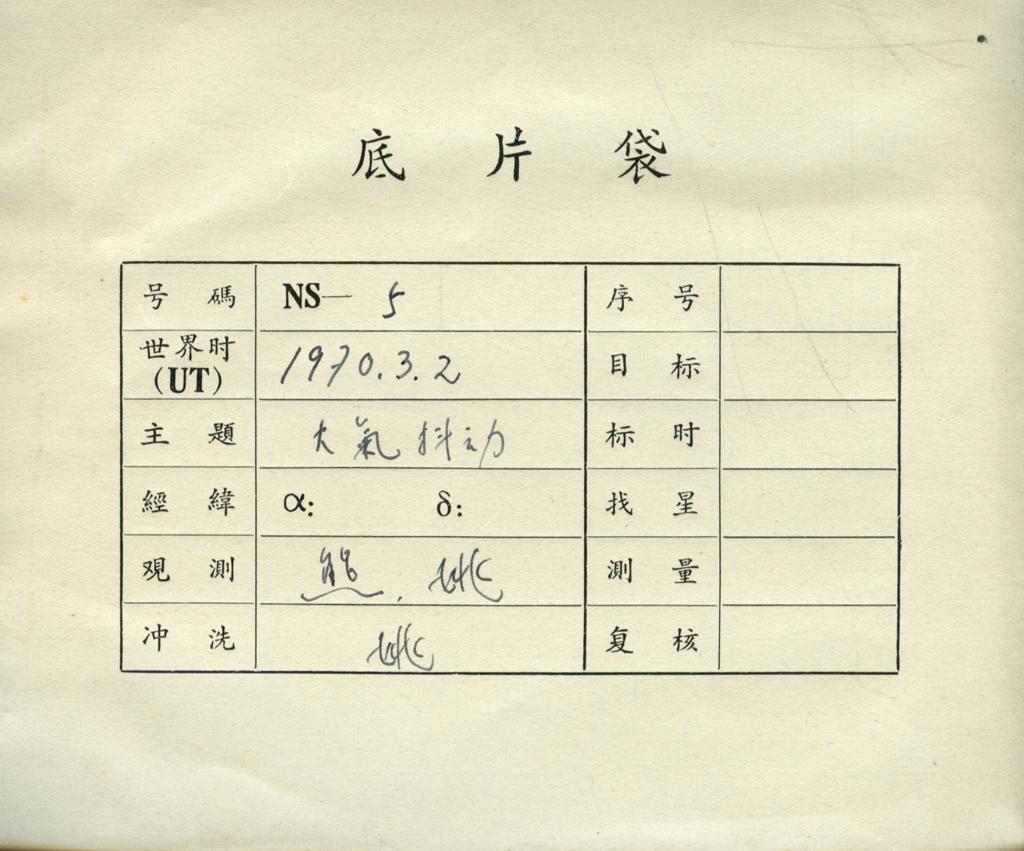 底片袋
号碼 NS— 5 序号
世界时(UT) 1970.3.2 目标
主題 大氣抖动 标时
經緯 α: δ: 找星
观測 熊. 姚 測量
冲洗 姚 复核